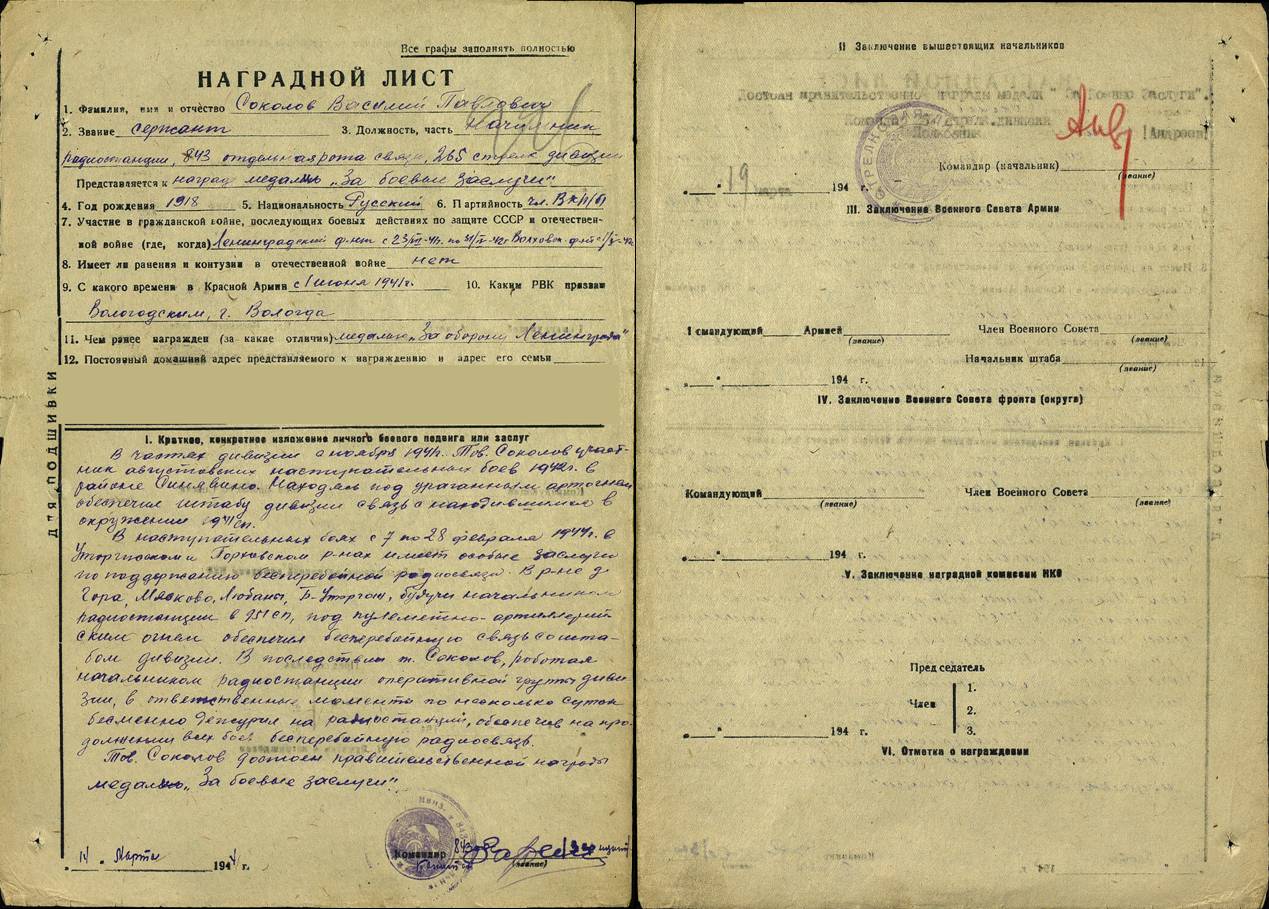 Все графы заполнять полностью
НАГРАДНОЙ ЛИСТ
1. Фамилия, имя и отчество Соколов Василий Павлович
2. Звание сержант 3. Должность, часть Начальник
радиостанции, 843 отдельная рота связи, 265 стрелк дивизии
Представляется к наград медалью „За боевые заслуги"
4. Год рождения 1918 5. Национальность Русский 6. Партийность чл. ВКП(б)
7. Участие в гражданской войне, последующих боевых действиях по защите СССР и отечествен-
ной войне (где, когда) Ленинградский фронт с по Волховск фронт с
8. Имеет ли ранения и контузии в отечественной войне нет
9. С какого времени в Красной Армии с 1 июня 1941 г. 10. Каким РВК призван
Вологодским, г. Вологда
11. Чем ранее награжден (за какие отличия) медалью „За оборону Ленинграда"
12. Постоянный домашний адрес представляемого к награждению и адрес его семьи
ДЛЯ ПОДШИВКИ
I. Краткое, конкретное изложение личного боевого подвига или заслуг
В частях дивизии с ноября 1941 г. Тов. Соколов участ-
ник августовских наступательных боев 1942 г. в
районе Синявино. Находясь под ураганным артогнем
обеспечил штабу дивизии связь с находившимся в
окружении 941 сп.
В наступательных боях с 7 по 28 февраля 1944 г. в
Уторгошском и Порховском р-нах имеет особые заслуги
по поддержанию бесперебойной радиосвязи. В р-не д.
Гора, Мясково, Любач, Б-Уторгош, будучи начальником
радиостанции в 951 сп, под пулеметно-артиллерий
ским огнем обеспечил бесперебойную связь со шта-
бом дивизии. В последствии т. Соколов, работая
начальником радиостанции оперативной группы диви
зии, в ответственные моменты по несколько суток
бесменно дежурил на радиостанции, обеспечив на про-
должении всех боев бесперебойную радиосвязь.
Тов. Соколов достоен правительственной награды
медалью „За боевые заслуги".
Командир 843
(звание)
14 " Марта 1944 г.
II Заключение вышестоящих начальников
Достоин правительственной награды медали " За Боевые Заслуги".
Командир стрелк. дивизии
Полковник (Андреев)
Командир (начальник)
(звание)
" 19 " марта 194 г.
III. Заключение Военного Совета Армии
Командующий Армией Член Военного Совета
(звание) (звание)
Начальник штаба
(звание)
" " 194 г.
IV. Заключение Военного Совета фронта (округа)
Командующий Член Военного Совета
(звание) (звание)
" " 194 г.
V. Заключение наградной комиссии НКО
Пред седатель
Член 1.
2.
3.
" " 194 г.
VI. Отметка о награждении